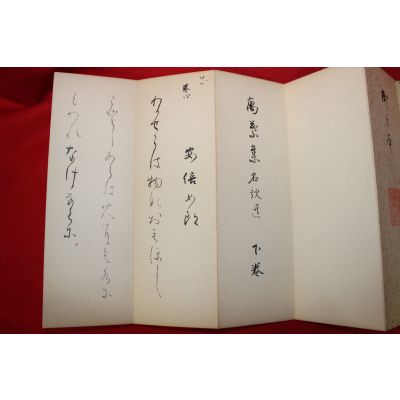 萬葉集名歌選 下巻
十一
巻四
安倍女郎
わかせこは物なおもほし
ことしあらは火にも水に
もわれなけなくに